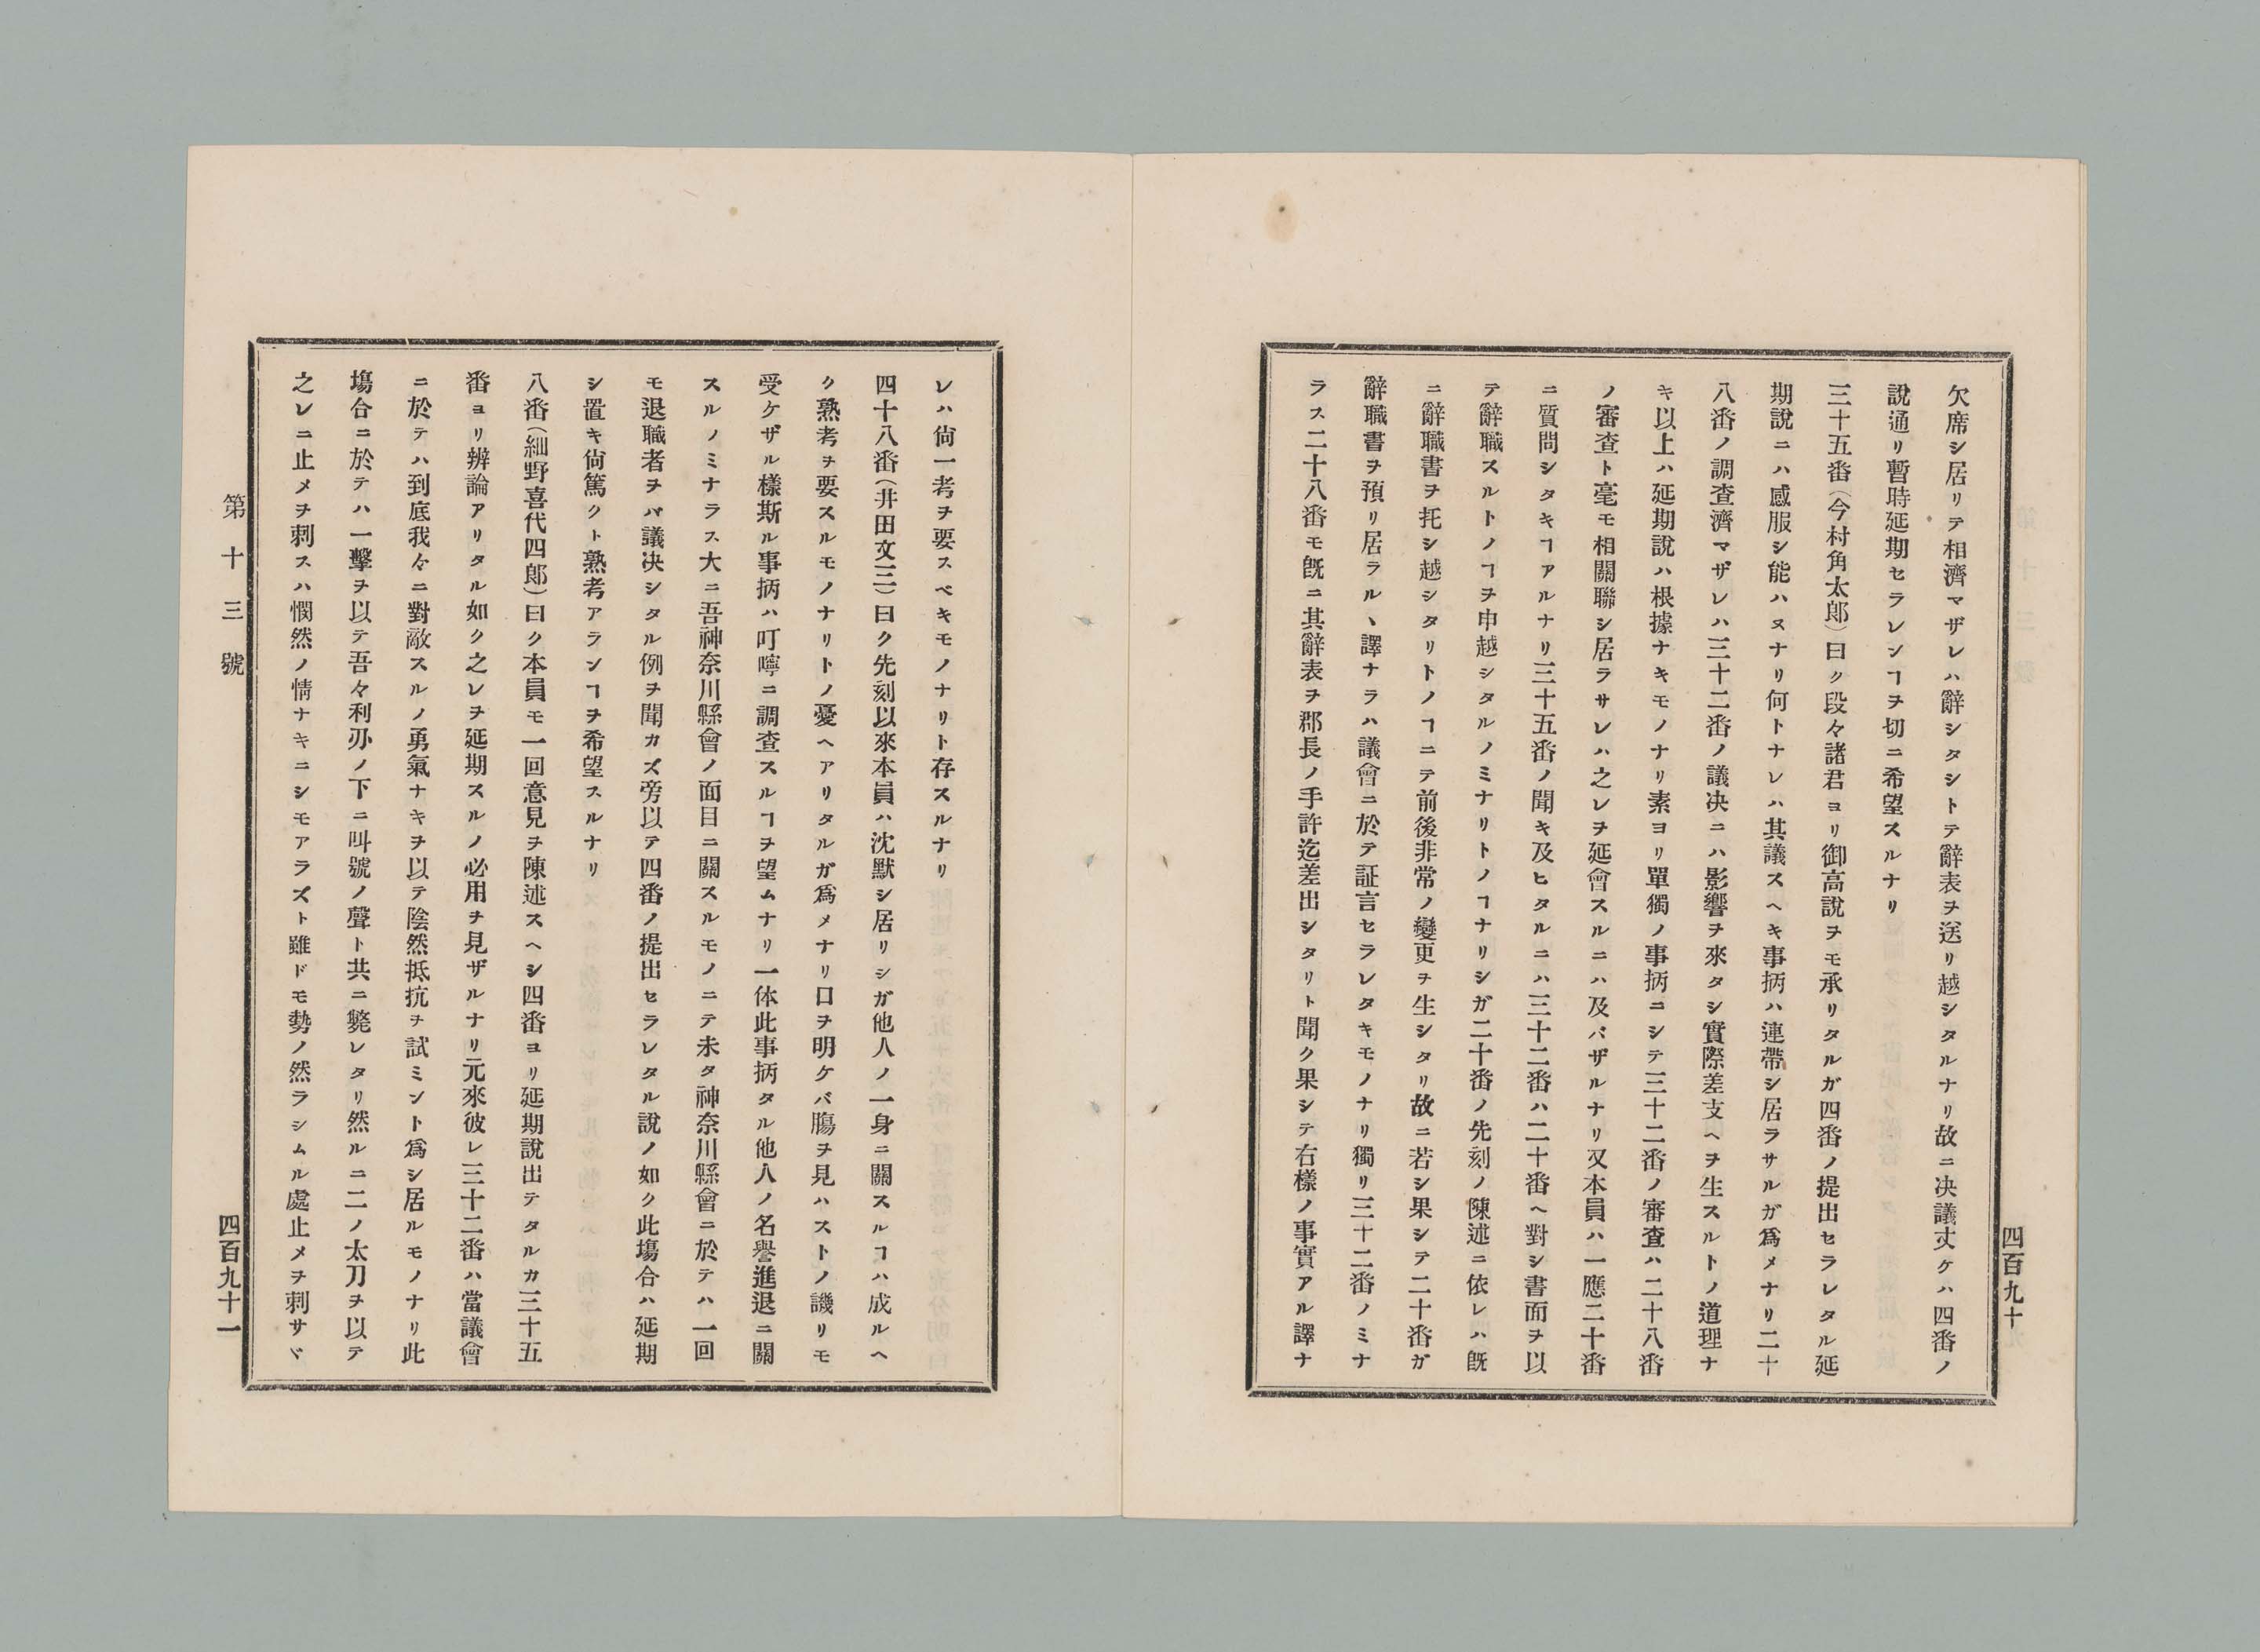 四百九十
欠席シ居リテ相濟マザレハ辭シタシトテ辭表ヲ送リ越シタルナリ故ニ决議丈ケハ四番ノ
說通リ暫時延期セラレンヿヲ切ニ希望スルナリ
三十五番（今村角太郎）曰ク段々諸君ヨリ御高說ヲモ承リタルガ四番ノ提出セラレタル延
期說ニハ感服シ能ハヌナリ何トナレハ其議スヘキ事柄ハ連帶シ居ラサルガ爲メナリ二十
八番ノ調查濟マザレハ三十二番ノ議决ニハ影響ヲ來タシ實際差支ヘヲ生スルトノ道理ナ
キ以上ハ延期說ハ根據ナキモノナリ素ヨリ單獨ノ事柄ニシテ三十二番ノ審查ハ二十八番
ノ審查ト毫モ相關聯シ居ラサレハ之レヲ延會スルニハ及バザルナリ又本員ハ一應二十番
ニ質問シタキヿアルナリ三十五番ノ聞キ及ヒタルニハ三十二番ハ二十番ヘ對シ書面ヲ以
テ辭職スルトノヿヲ申越シタルノミナリトノヿナリシガ二十番ノ先刻ノ陳述ニ依レハ旣
ニ辭職書ヲ托シ越シタリトノヿニテ前後非常ノ變更ヲ生シタリ故ニ若シ果シテ二十番ガ
辭職書ヲ預リ居ラルヽ譯ナラハ議會ニ於テ証言セラレタキモノナリ獨リ三十二番ノミナ
ラス二十八番モ旣ニ其辭表ヲ郡長ノ手許迄差出シタリト聞ク果シテ右樣ノ事實アル譯ナ
レハ尙一考ヲ要スベキモノナリト存スルナリ
四十八番（井田文三）曰ク先刻以來本員ハ沈默シ居リシガ他人ノ一身ニ關スルヿハ成ルヘ
ク熟考ヲ要スルモノナリトノ憂ヘアリタルガ爲メナリ口ヲ明ケバ膓ヲ見ハストノ譏リモ
受ケザル樣斯ル事柄ハ叮嚀ニ調查スルヿヲ望ムナリ一体此事柄タル他人ノ名譽進退ニ關
スルノミナラス大ニ吾神奈川縣會ノ面目ニ關スルモノニテ未タ神奈川縣會ニ於テハ一回
モ退職者ヲバ議决シタル例ヲ聞カズ旁以テ四番ノ提出セラレタル說ノ如ク此塲合ハ延期
シ置キ尙篤クト熟考アランヿヲ希望スルナリ
八番（細野喜代四郎）曰ク本員モ一回意見ヲ陳述スヘシ四番ヨリ延期說出テタルカ三十五
番ヨリ辨論アリタル如ク之レヲ延期スルノ必用ヲ見ザルナリ元來彼レ三十二番ハ當議會
ニ於テハ到底我々ニ對敵スルノ勇氣ナキヲ以テ陰然抵抗ヲ試ミント爲シ居ルモノナリ此
塲合ニ於テハ一擊ヲ以テ吾々利刅ノ下ニ叫號ノ聲ト共ニ斃レタリ然ルニ二ノ太刀ヲ以テ
之レニ止メヲ刺スハ憫然ノ情ナキニシモアラズト雖ドモ勢ノ然ラシムル處止メヲ刺サヾ
第十三號
四百九十一